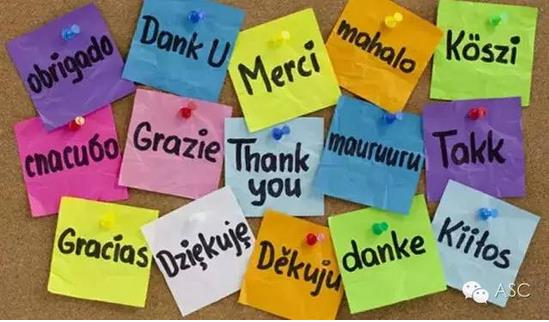 obrigado
Dank U
Merci
mahalo
Köszi
спасибо
Grazie
Thank
you
mauruuru
Takk
Gracias
Dziękuję
Děkuju
danke
Kiitos
ASC